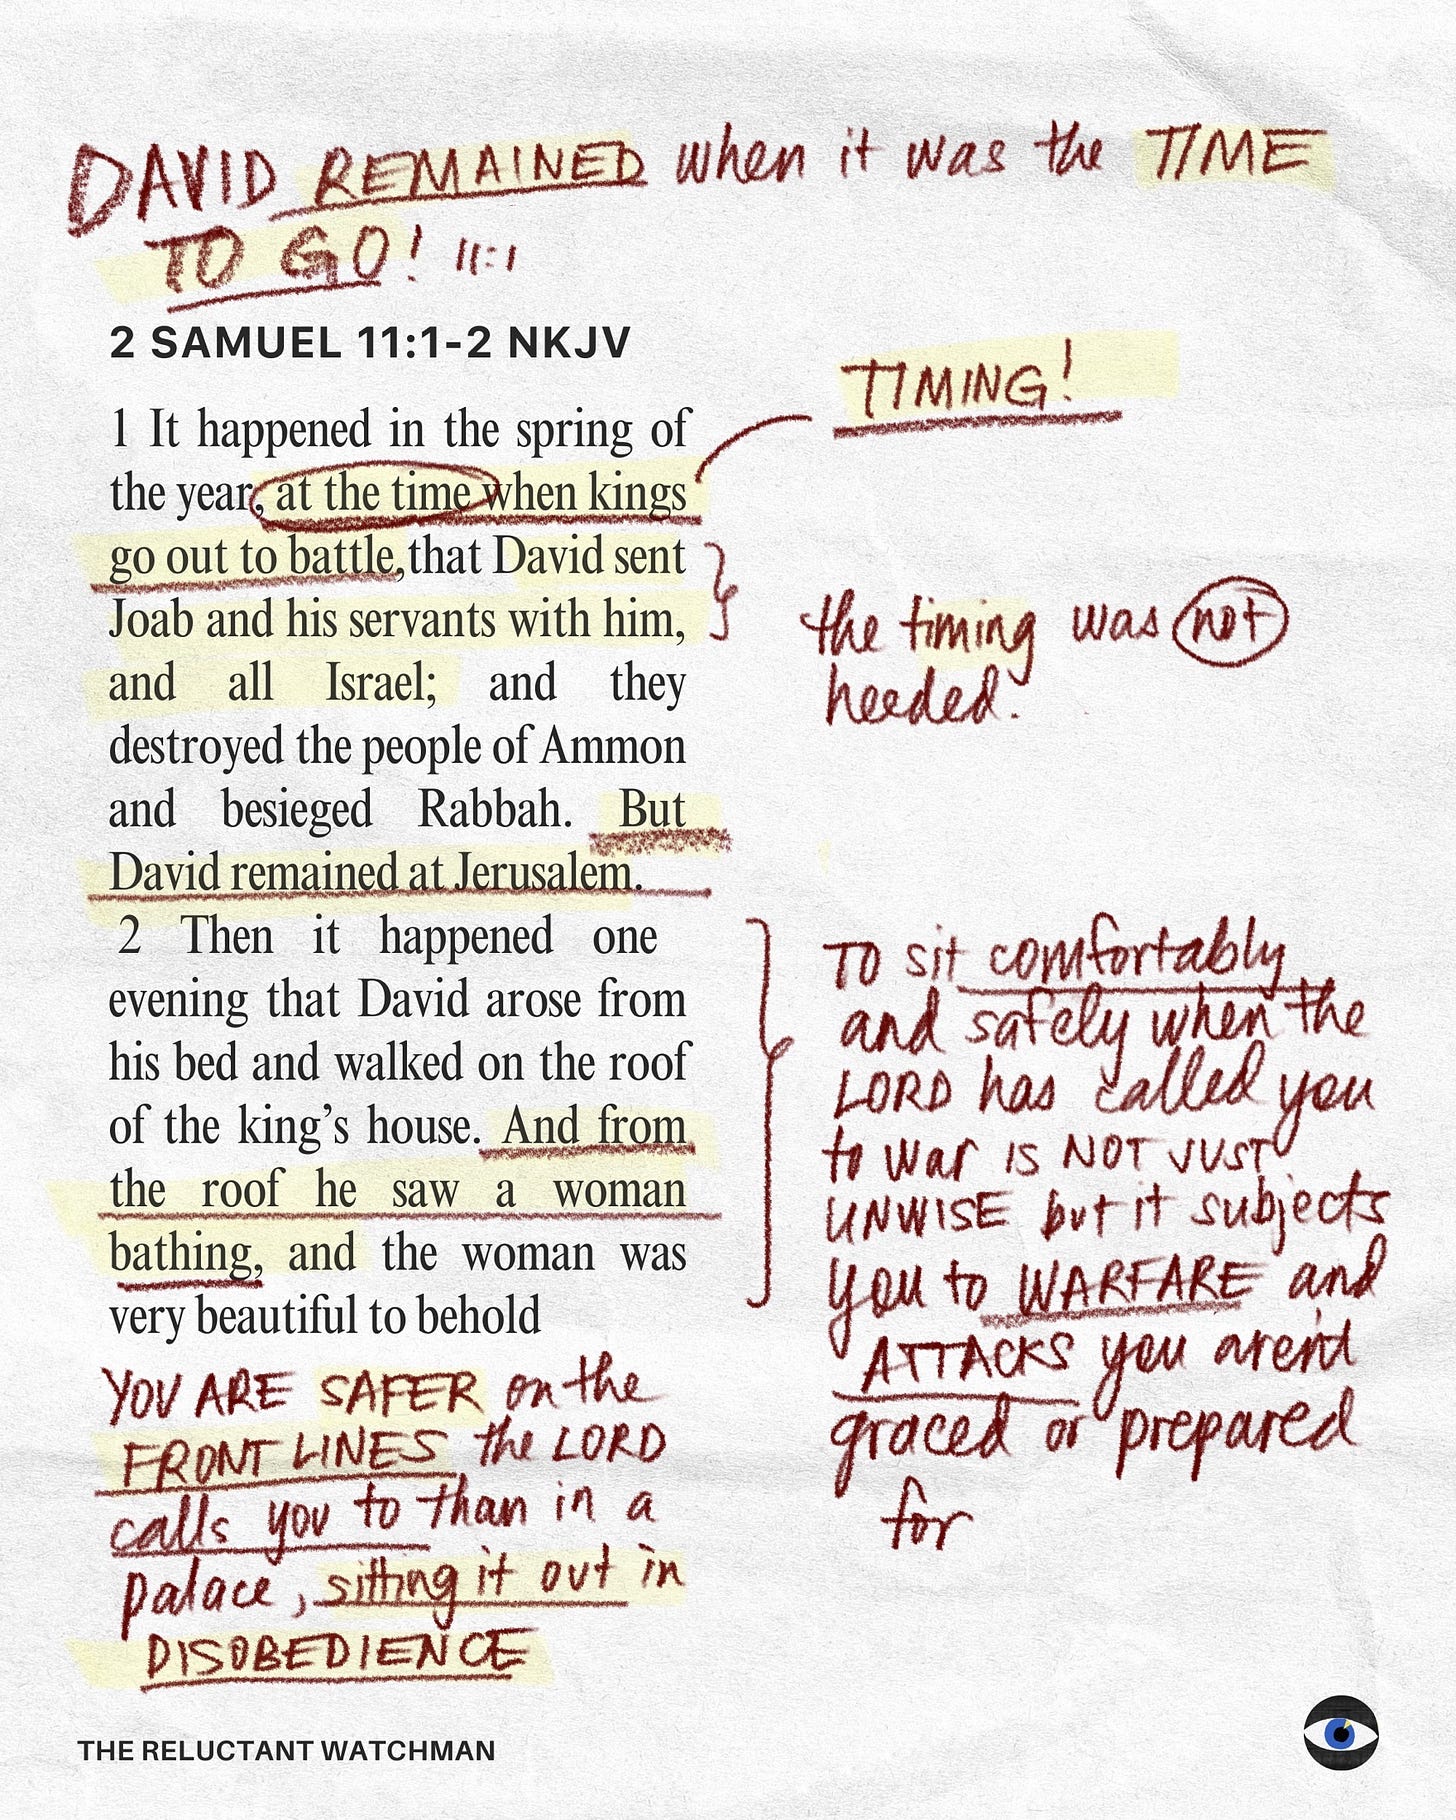 DAVID REMAINED when it was the TIME
TO GO! 11:1
2 SAMUEL 11:1-2 NKJV
TIMING!
1 It happened in the spring of
the year, at the time when kings
go out to battle,that David sent
Joab and his servants with him,
and all Israel; and they
destroyed the people of Ammon
and besieged Rabbah. But
David remained at Jerusalem.
the timing was not
heeded.
2 Then it happened one
evening that David arose from
his bed and walked on the roof
of the king’s house. And from
the roof he saw a woman
bathing, and the woman was
very beautiful to behold
TO sit comfortably
and safely when the
LORD has called you
to war IS NOT JUST
UNWISE but it subjects
you to WARFARE and
ATTACKS you aren't
graced or prepared
for
YOU ARE SAFER on the
FRONT LINES the LORD
calls you to than in a
palace, sitting it out in
DISOBEDIENCE
THE RELUCTANT WATCHMAN